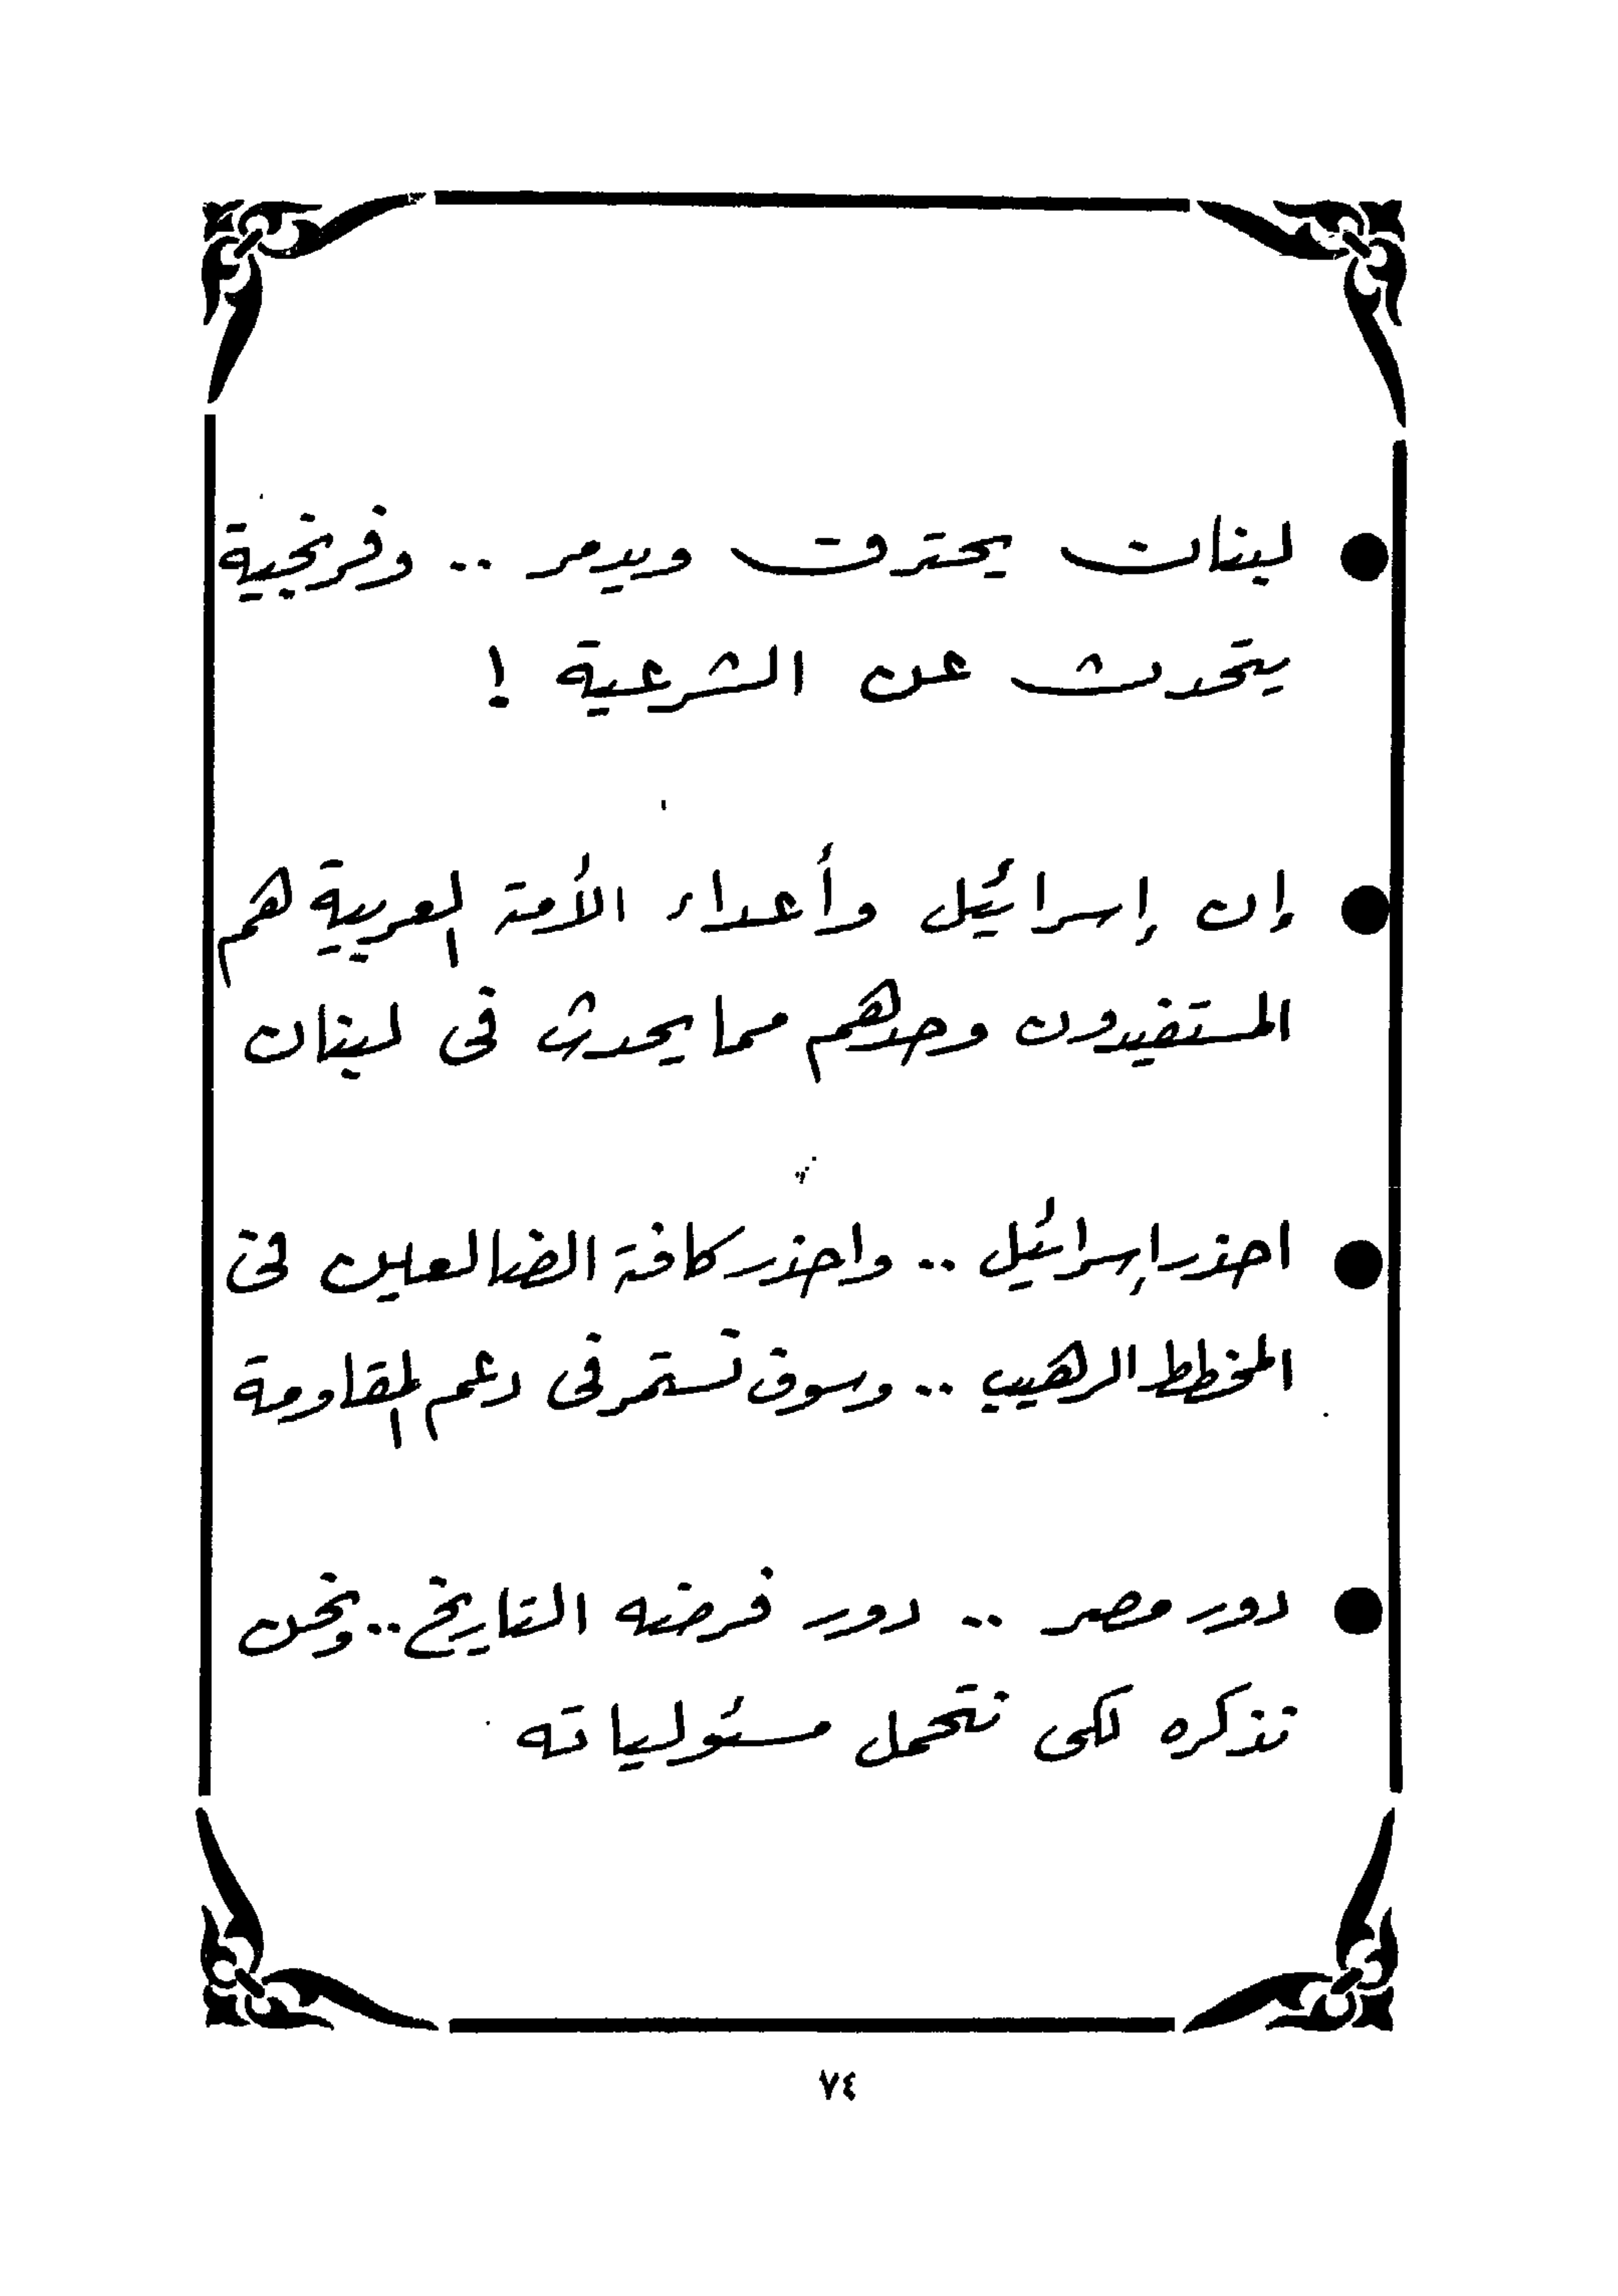 ● لبنان يحترق ويدمر .. وفرنجية
يتحدث عن الشرعية !
● إن إسرائيل وأعداء الأمة العربية هم
المستفيدون وحدهم مما يحدث فى لبنان
● احذر إسرائيل .. واحذر كافة الضالعين فى
المخطط الرهيب .. وسوف تستمر فى دعم المقاومة
● دور مصر .. دور فرضه التاريخ .. ونحن
نذكره لكى نتحمل مسئولياته
٧٤